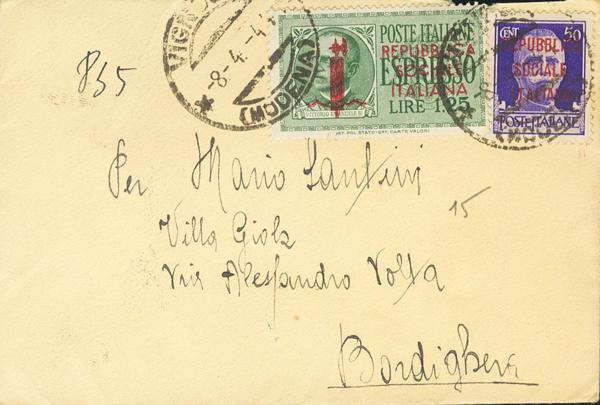 VIGNOLA
-8.4.4
(MODENA)
POSTE ITALIANE
REPUBBLICA
ESPRESSO
SOCIALE
ITALIANA
LIRE 1.25
VITTORIO EMANUELE III
IST. POL. STATO-OFF. CARTE VALORI
CENT. 50
REPUBBLICA
SOCIALE
ITALIANA
POSTE ITALIANE
835
Per Mario Santini
15
Villa Giola
Via Alessandro Volta
Bordighera